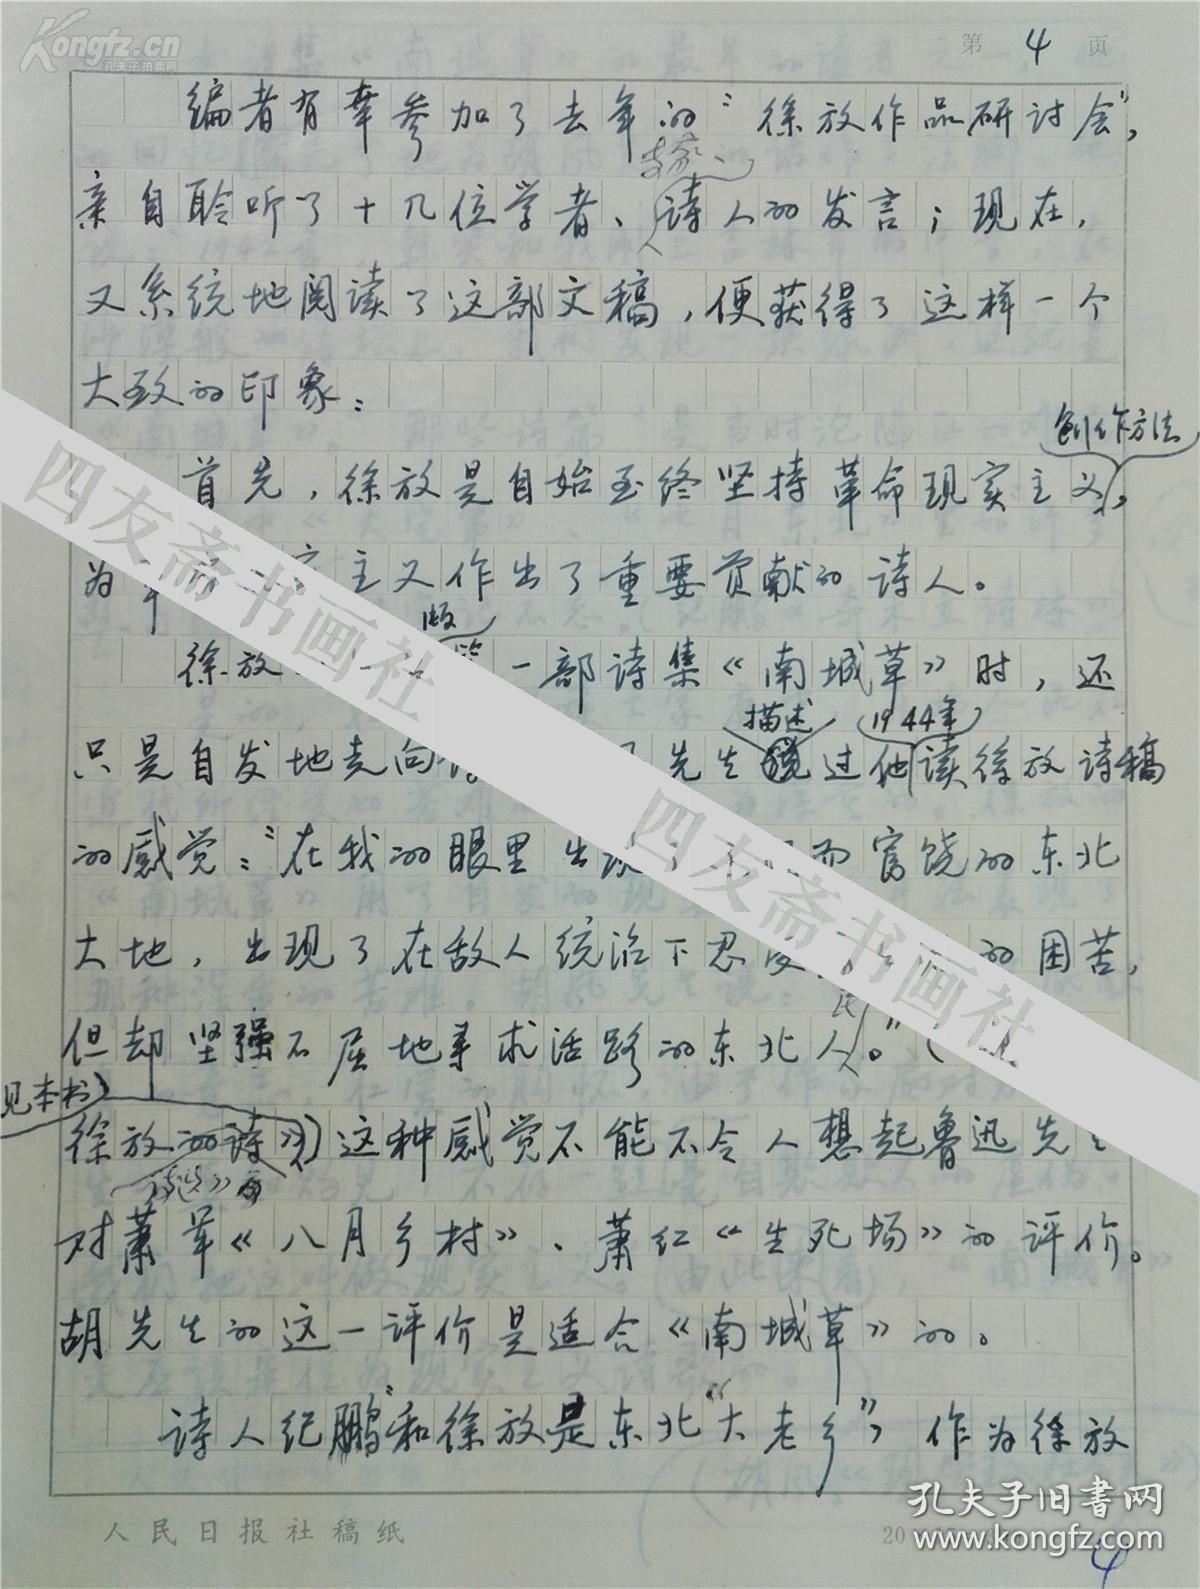 Kongfz.cn
孔夫子拍卖网
第 4 页
编者有幸参加了去年的“徐放作品研讨会”，
亲自聆听了十几位学者、诗人的发言；现在，
又系统地阅读了这部文稿，便获得了这样一个
大致的印象：
创作方法
首先，徐放是自始至终坚持革命现实主义，
为 主义作出了重要贡献的诗人。
版
徐放 一部诗集《南城草》时，还
描述 1944年
只是自发地走向 先生 过他读徐放诗稿
的感觉：“在我的眼里出现了 而富饶的东北
大地，出现了在敌人统治下忍受 的困苦，
民
但却坚强不屈地寻求活路的东北人。”（
见本书
徐放的诗》）这种感觉不能不令人想起鲁迅先生
对萧军《八月乡村》、萧红《生死场》的评价。
胡先生的这一评价是适合《南城草》的。
诗人纪鹏和徐放是东北“大老乡”，作为徐放
四友斋书画社
四友斋书画社
人民日报社稿纸
20
4
孔夫子旧书网
www.kongfz.com